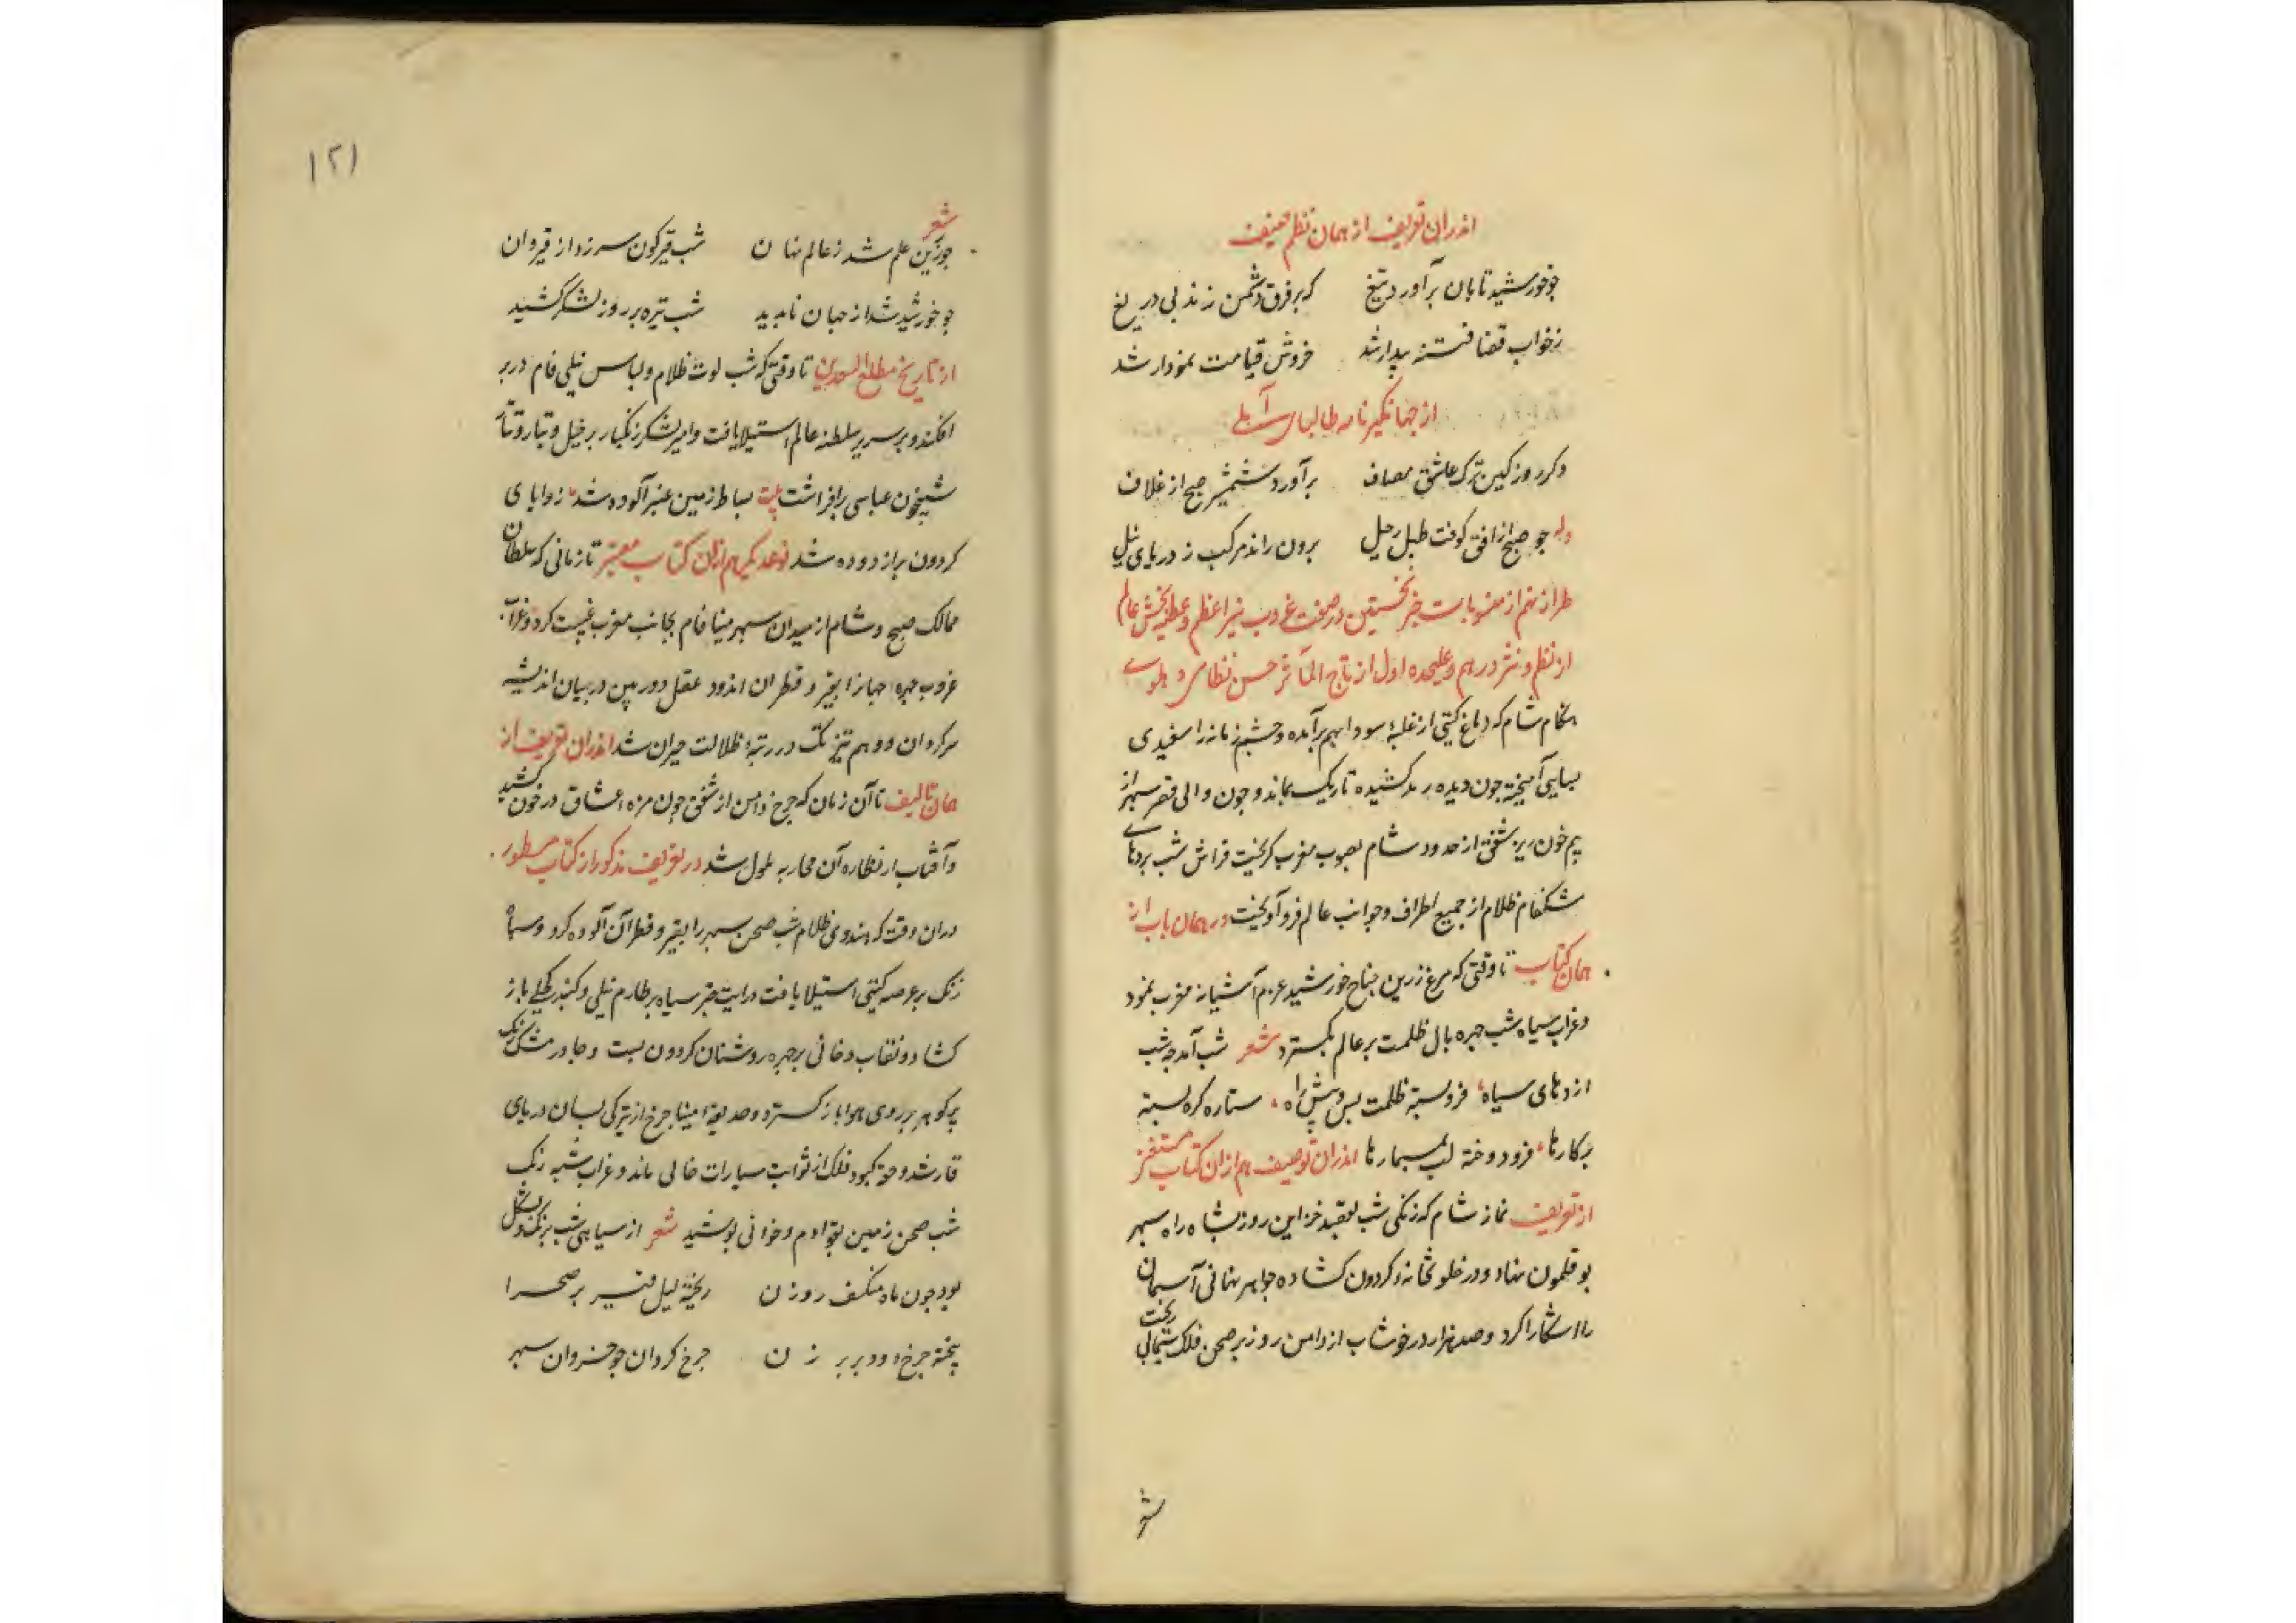 اندران تعریف از همان نظم منیف
چو خورشید تابان برآورد تیغ که بر فرق دشمن زند بی دریغ
ز خواب قضا فتنه بیدار شد خروش قیامت نمودار شد
از جهانگیر نامه طالبای آملی
دکر روز کین ترک عاشق مصاف برآورد شمشیر صبح از غلاف
وله چو صبح از افق کوفت طبل رحیل برون راند مرکب ز دریای نیل
طراز نهم از منسوبات خبر نخستین در صفت غروب نیر اعظم و عطیه بخش عالم
از نظم و نثر در هم و علیحده اول از تاج المآثر حسن نظامی دهلوی
هنکام شام که دماغ کیتی از غلبهٔ سودا بهم برآمده و چشم زمانه را سفیدی
بسیاهی آمیخته چون دیده رمد کشیده تاریک بماند و چون والی قصر سپهر از
بیم خون ریز شفق از حدود شام بصوب مغرب کریخت فراش شب پردهای
مشکفام ظلام از جمیع اطراف و جوانب عالم فرو آویخت در همان باب از
همان کتاب تا وقتی که مرغ زرین جناح خورشید عزم آشیانه مغرب نمود
و غراب سیاه شب چهره بال ظلمت بر عالم بکسترد شعر شب آمد چه شب
اژدهای سیاه فروبسته ظلمت پس و پیش راه ستاره کره بسته
بر کارها فرو دوخته لب بمسمارها اندران توصیف هم از ان کتاب مستغنی
از تعریف نماز شام که زنکی شب بقصد خزاین روز بشاه راه سپهر
بوقلمون نهاد و در خلوتخانه کردون کشاده جواهر نهانی آسمان
را اشکارا کرد و صد هزار در خوشاب از دامن روز بر صحن فلک شمالی ریخت
شعر
۱۲۱
شعر
چو زرین علم شد ز عالم نهان شب قیرکون سر زد از قیروان
چو خورشید شد از جهان ناپدید شب تیره بر روز لشکر کشید
از تاریخ مطلع السعدین تا وقتی که شب لوث ظلام و لباس نیلی فام در بر
افکند و بر سریر سلطنه عالم استیلا یافت و امیر لشکر زنکبار بر خیل و تبار و تتار
شبیخون عباسی برافراشت بیت بساط زمین عنبرآلوده شد زوایای
کردون پر از دوده شد نوعدیکر هم از ان کتاب معتبر تا زمانی که سلطان
ممالک صبح و شام از میدان سپهر مینا فام بجانب مغرب غیبت کرد و غراب
غروب چهره جهانرا بقیر و قطران اندود عقل دوربین در بیان اندیشه
سرکردان و وهم تیز تک در رتبهٔ ظلالت حیران شد اندران تعریف از
همان تالیف تا آن زمان که چرخ دامن از شفق چون مژه عشاق در خون کشید
و آفتاب از نظاره آن محاربه ملول شد در تعریف مذکور از کتاب مسطور
دران وقت که هندوی ظلام شب صحن سپهر را بقیر و قطران آلوده کرد و سپاه
زنک بر عرصه کیتی استیلا یافت و رایت چتر سیاه بر طارم نیلی و کنبد کحلی باز
کشاد و نقاب دخانی بر چهره روشنان کردون بست و چادر مشک رنک
پر کوهر بر روی هوا باز کسترد و حدیقهٔ مینا چرخ از تیرکی بسان دریای
قار شد و حقه کبود فلک از ثوابت سیارات خالی ماند و غراب شبه رنک
شب صحن زمین بقوادم و خوافی بپوشید شعر از سیاهی شب بزنک و بشکل
بود چون ماه منکسف روزن ریخته لیل قیر بر صحرا
بیخته چرخ دوده بر برزن چرخ کردان چو خسروان سپهر